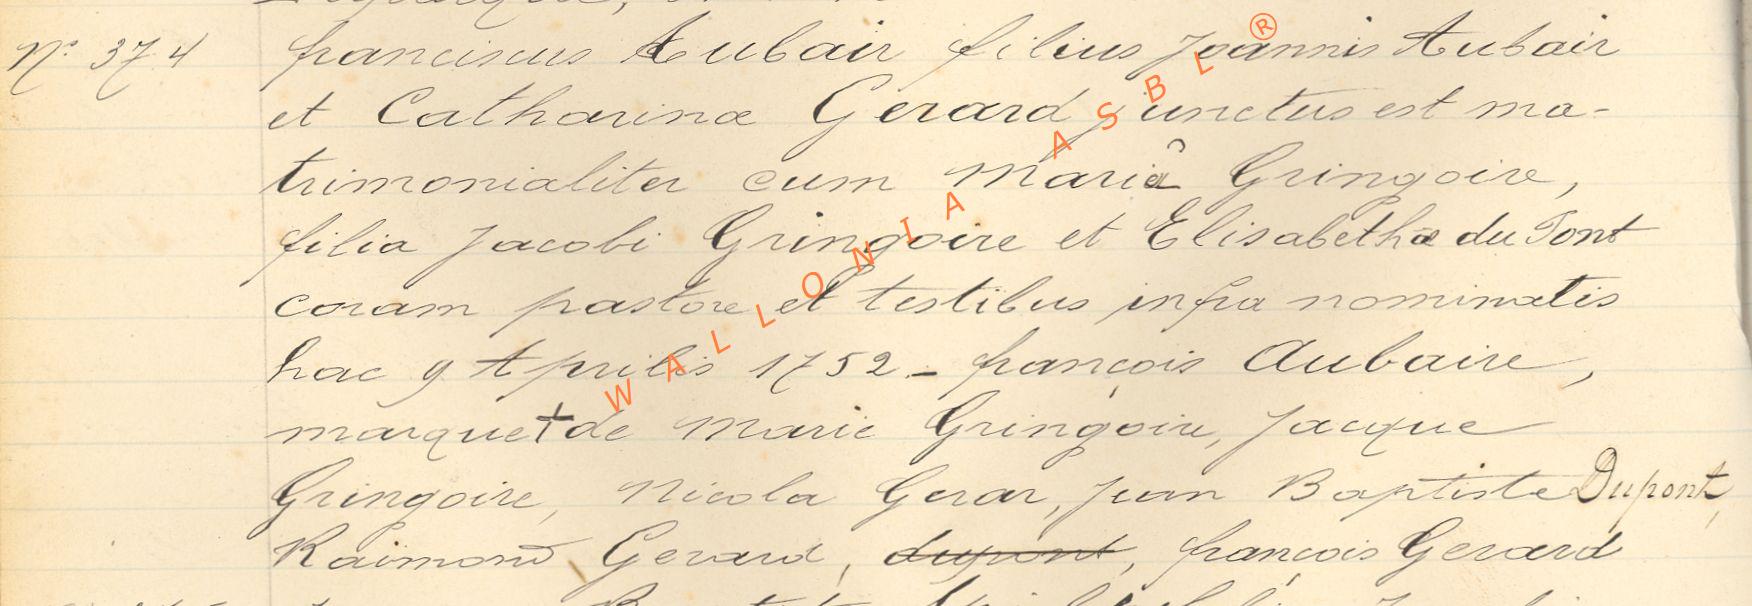 N° 374 franciscus Aubair filius Joannis Aubair
et Catharinæ Gerard junctus est ma-
trimonialiter cum Mariâ Gringoire,
filia Jacobi Gringoire et Elisabethæ du Pont
coram pastore et testibus infra nominatis
hac 9 Aprilis 1752 - françois Aubaire,
marque + de Marie Gringoire, Jacque
Gringoire, Nicola Gerar, Jean Baptiste Dupont,
Raimond Gerard, dupont, françois Gerard
WALLONIA ASBL ®